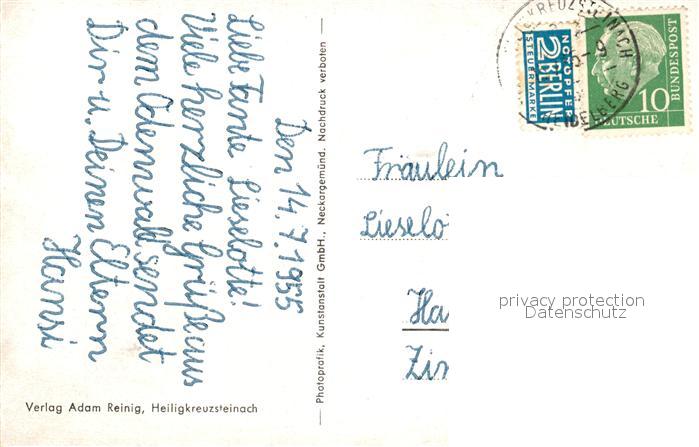 Den 14.7.1955
Liebe Tante Lieselotte!
Viele herzliche Grüße aus
dem Odenwald sendet
Dir u. Deinen Eltern
Hansi
Verlag Adam Reinig, Heiligkreuzsteinach
Photoprafik, Kunstanstalt GmbH., Neckargemünd. Nachdruck verboten
KREUZSTEINACH
HEIDELBERG
NOTOPFER
2 BERLIN
STEUERMARKE
10
DEUTSCHE
BUNDESPOST
Fräulein
Lieselo
Ha
Zir
privacy protection
Datenschutz